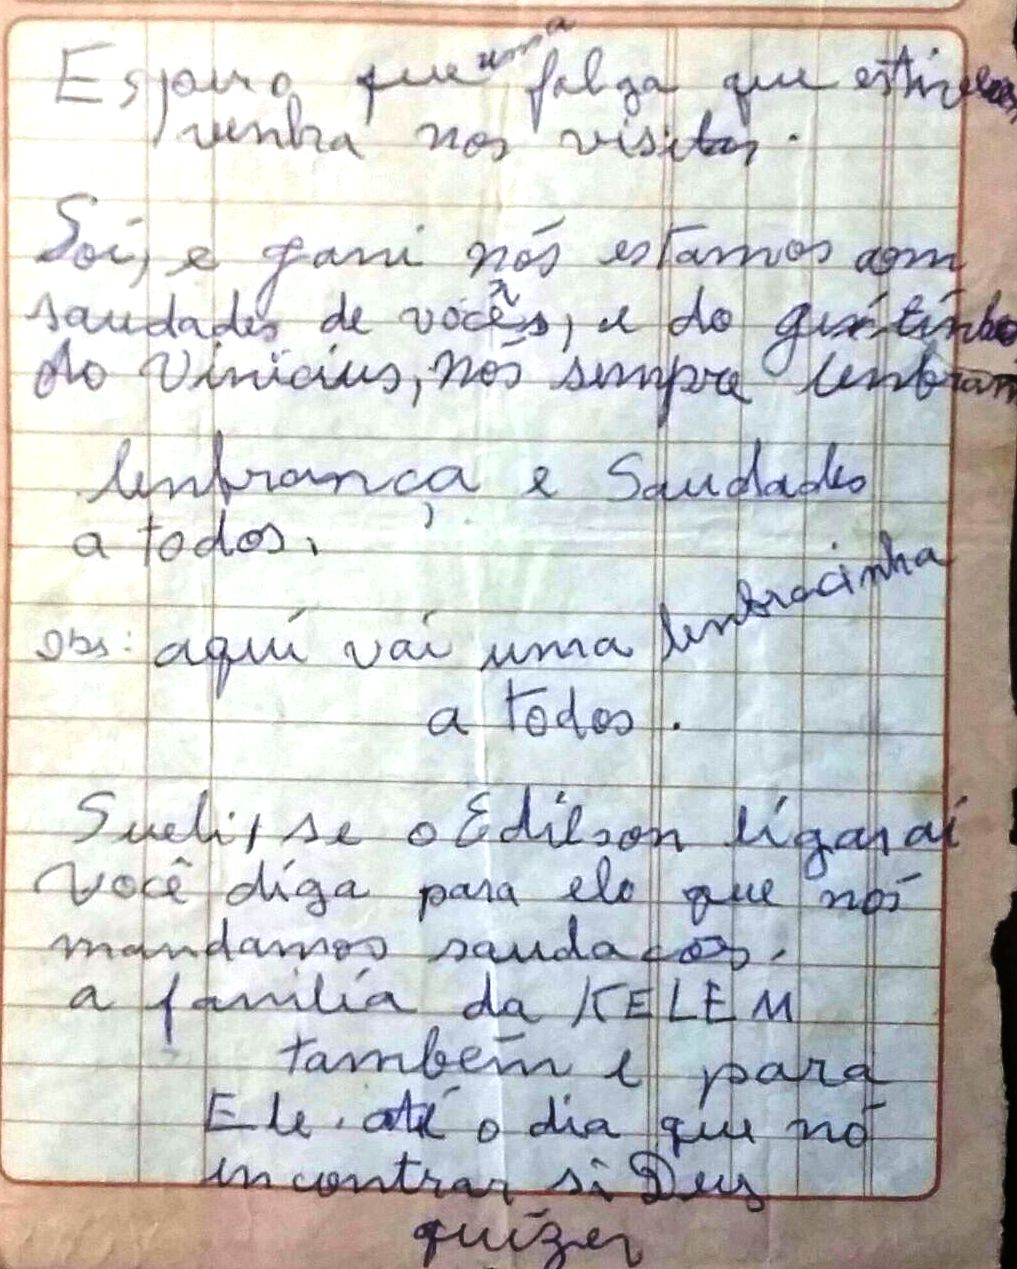 Espero que uma folga que estiver
venha nos visitar.
Soí, e gani nós estamos com
saudades de vocês, e do geitinho
do Vinicius, nós sempre lenbram
lenbrança e Saudades
a todos.
obs: aqui vai uma lenbracinha
a todos.
Sueli, se o Edilson ligar aí
você diga para ele que nós
mandamos saudacões.
a família da KELEM
também e para
Ele. até o dia que nó
incontrar si Deuz
quizer